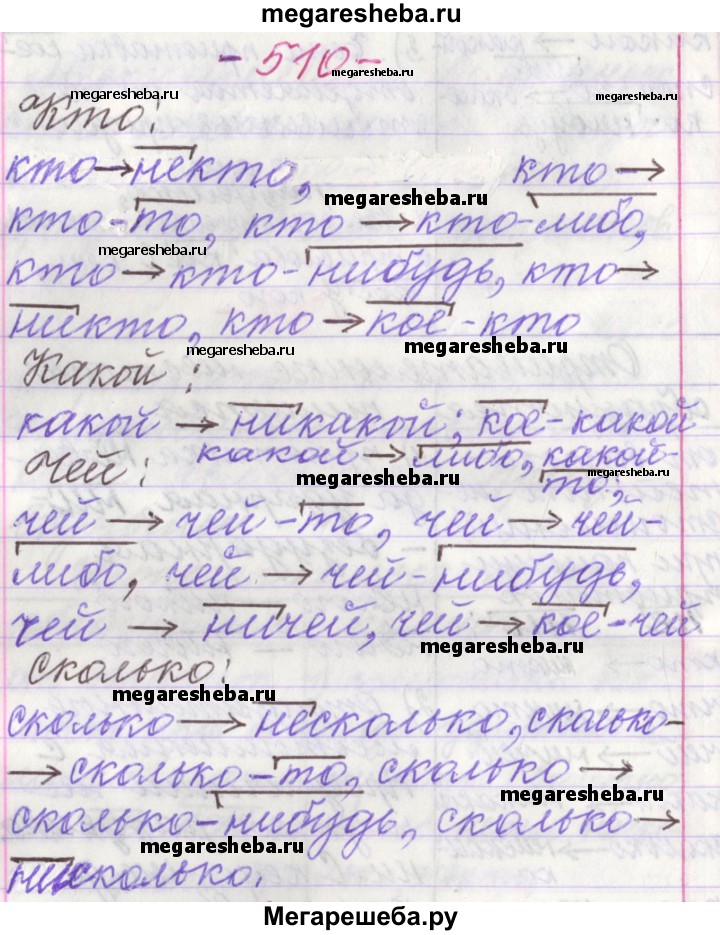 megaresheba.ru
- 510 -
megaresheba.ru
megaresheba.ru
megaresheba.ru
Кто:
кто → некто, кто →
megaresheba.ru
кто-то, кто → кто-либо,
megaresheba.ru
кто → кто-нибудь, кто →
никто, кто → кое-кто
megaresheba.ru
megaresheba.ru
Какой:
какой → никакой; кое-какой
какой → либо, какой-
megaresheba.ru
megaresheba.ru
то;
Чей:
чей → чей-то, чей → чей-
либо, чей → чей-нибудь,
чей → ничей, чей → кое-чей
megaresheba.ru
Сколько:
megaresheba.ru
сколько → несколько, сколько-
→ сколько-то, сколько →
megaresheba.ru
сколько-нибудь, сколько →
megaresheba.ru
нисколько.
Мегарешеба.ру